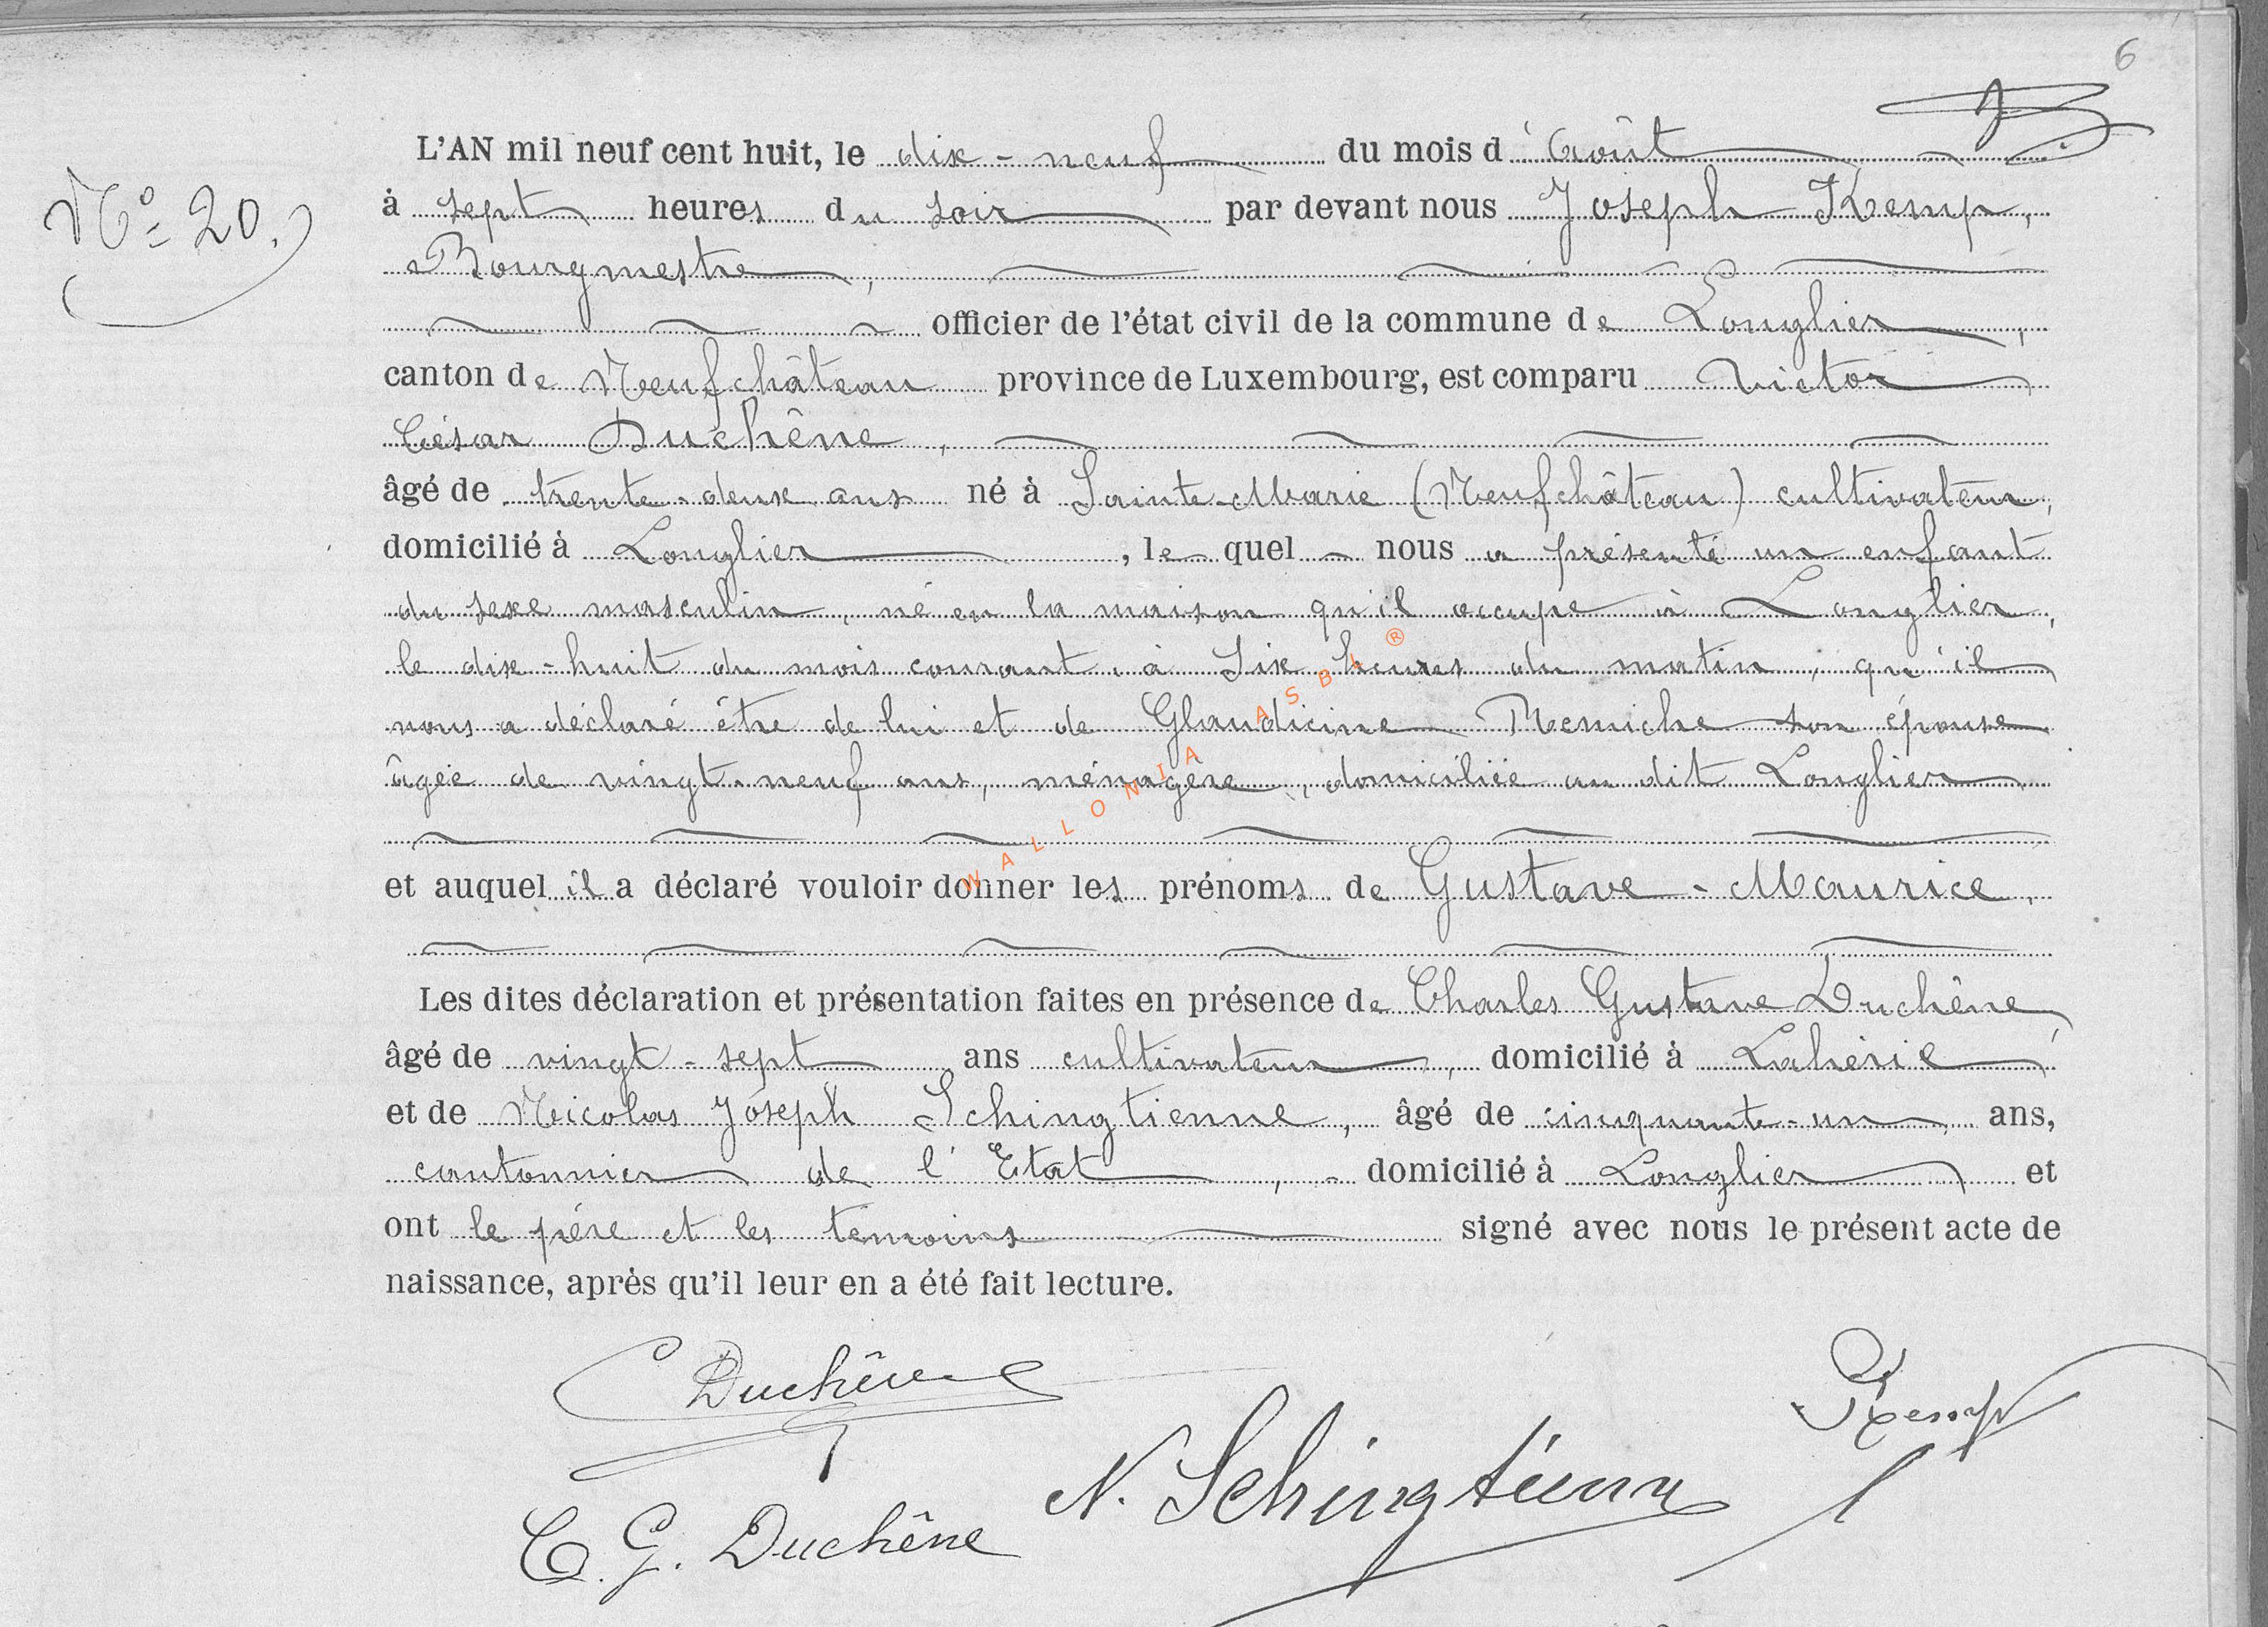 6
L'AN mil neuf cent huit, le dix-neuf du mois d'Août
N° 20.
à sept heures du soir par devant nous Joseph Kemp,
Bourgmestre,
officier de l'état civil de la commune de Longlier,
canton de Neufchâteau province de Luxembourg, est comparu Victor
César Duchêne,
âgé de trente-deux ans né à Sainte-Marie (Neufchâteau) cultivateur,
domicilié à Longlier, lequel nous a présenté un enfant
du sexe masculin, né en la maison qu'il occupe à Longlier,
le dix-huit du mois courant, à Six heures du matin, qu'il
nous a déclaré être de lui et de Glaudicine Remiche son épouse
âgée de vingt-neuf ans, ménagère, domiciliée au dit Longlier
et auquel il a déclaré vouloir donner les prénoms de Gustave-Maurice.
Les dites déclaration et présentation faites en présence de Charles Gustave Duchêne,
âgé de vingt-sept ans cultivateur, domicilié à Lahérie
et de Nicolas Joseph Schingtienne, âgé de cinquante-un ans,
cantonnier de l'Etat, domicilié à Longlier et
ont le père et les temoins signé avec nous le présent acte de
naissance, après qu'il leur en a été fait lecture.
C Duchêne
Kemp
N. Schingtienne
C. G. Duchêne
WALLONIA ASBL ®